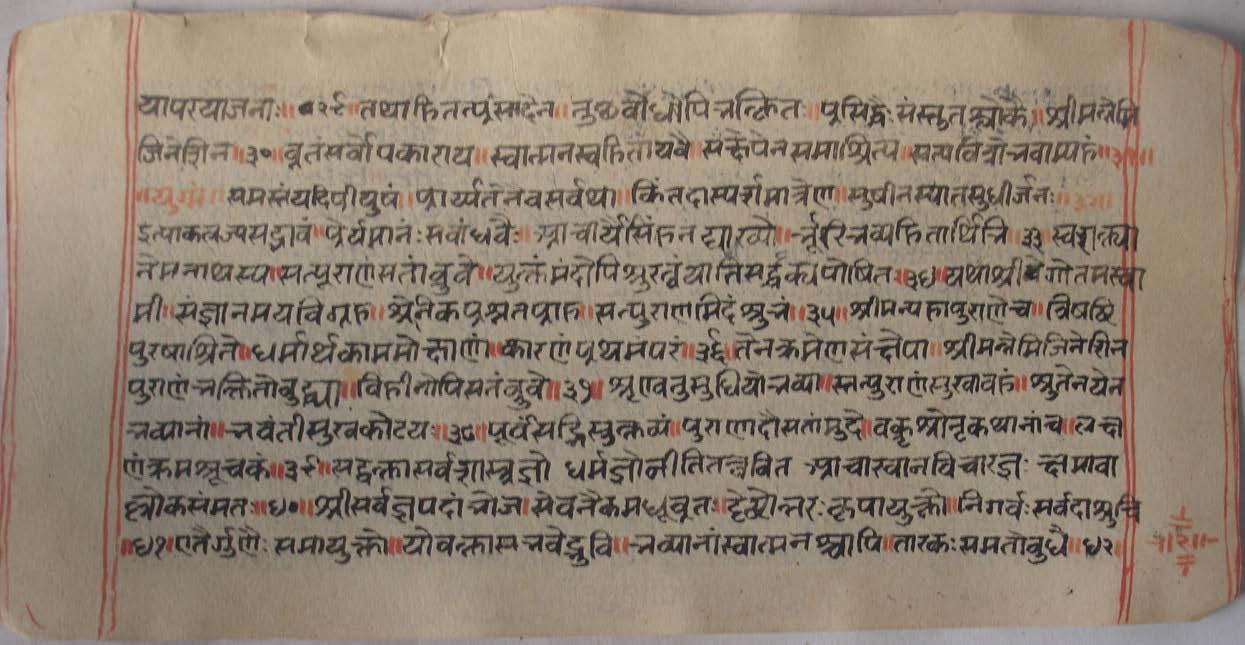 यापरयाजनाः॥२९॥तथाहितत्प्रसादेन॥तुछबोधोपिभक्तितः॥प्रसिद्धैःसंस्तुतश्लोकै॥श्रीमन्नेमि
जिनेशिन॥३०॥वूतंसर्वोपकाराय॥स्वात्मनस्वहितायवै॥संक्षेपेनसमाश्रित्य॥सत्पवित्रोभवाम्यहं॥३१॥
॥युग्मं॥समस्तंयदिपीयुषं॥प्रार्य्यतेनेवसर्वथा॥किंतदास्पर्शमात्रेण॥सुषीनस्यातसुधीर्जनः॥३२॥
इत्याकलज्यसद्भावं॥प्रेर्यमानंःसबांधवैः॥आचार्यैसिंहनद्याख्यो॥र्भूरिभव्यहितार्थिभि॥३३॥स्वशक्त्या
नेमनाथस्य॥सत्पूराणंसतांब्रुवे॥युक्तंमंदोपिशुरत्वंयातिसर्द्वक्यपोषित॥३४॥यथाश्रीगोतमस्वा
मी॥संज्ञानमयविग्रह॥श्रेनिकप्रश्नतप्राह॥सत्पुराणमिदंश्रुभं॥३५॥श्रीमन्महापुराणेच॥त्रिषष्टि
पुरषाश्रिते॥धर्मार्थकाममोक्षाणां॥कारणंप्रथमंपरं॥३६॥तेनक्रमेणसंक्षेपा॥श्रीमन्नेमिजिनेशिन
पुराणंभक्तितोबुद्ध्या॥विहीनोपिसतंब्रुवे॥३७॥श्रृएवतुसुधियोभव्या॥स्तत्पुराणंसुखावहं॥श्रुतेनयेन
भव्यानां॥भवंतीसुखकोटयः॥३८॥पूर्वंसद्भिस्तुक्तव्यं॥पुराणादौसतांमुदे॥वक्तृश्रोतृकथानांच॥लक्ष
णंक्रमश्रूचकं॥३९॥सद्वक्तासर्वशास्त्रज्ञो धर्मज्ञोनीतितत्त्ववित आचारवानविचारज्ञः क्षमावा
ल्लोकसंमतः॥४०॥श्रीसर्वज्ञपदांभोज॥सेवनैकमधूव्रतः॥दृष्टोत्तरःकृपायुक्तो॥निगर्वःसर्वदाश्रुचि
॥४१॥एतैर्गुणैःसमायुक्तो॥योवक्तासभवेद्भुवि॥भव्यानांस्वात्मनश्चापि॥तारकःसमतोबुधै॥४२॥
॥२॥